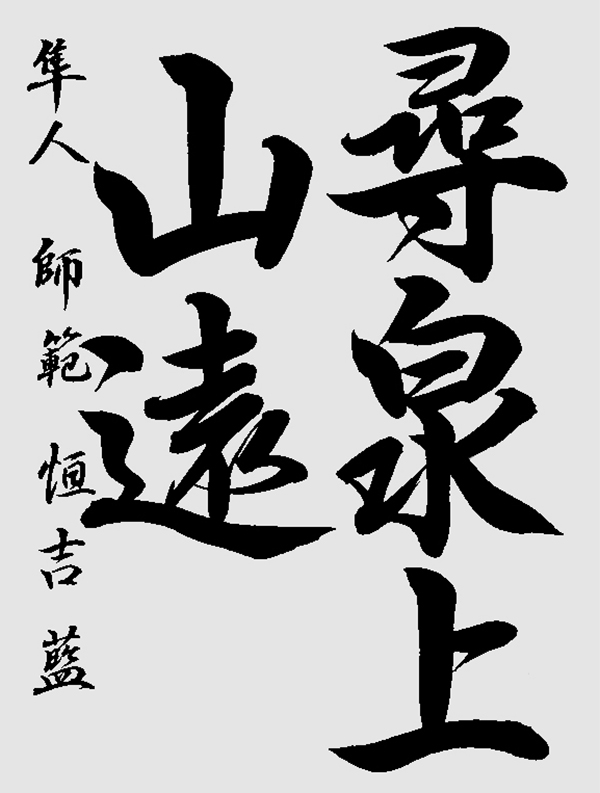 尋泉上
山遠
隼人 師範 恒吉 藍